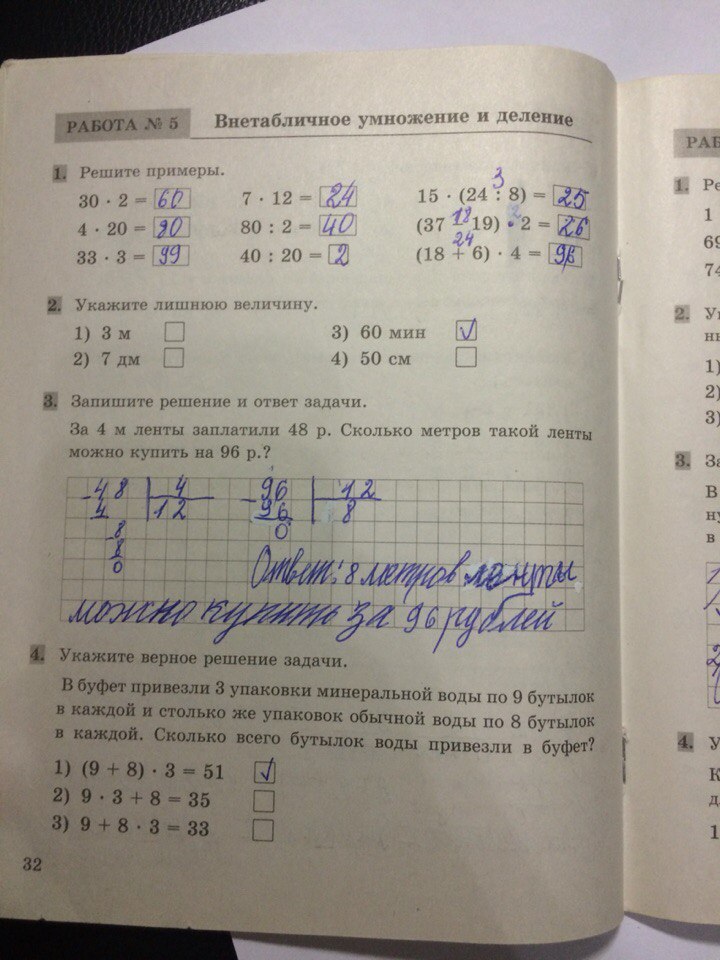 РАБОТА № 5 Внетабличное умножение и деление
1. Решите примеры.
3
30 · 2 = 60 7 · 12 = 24 15 · (24 : 8) = 25
18
4 · 20 = 80 80 : 2 = 40 (37 - 19) · 2 = 26
24
33 · 3 = 99 40 : 20 = 2 (18 + 6) · 4 = 96
2. Укажите лишнюю величину.
1) 3 м 3) 60 мин ✓
2) 7 дм 4) 50 см
3. Запишите решение и ответ задачи.
За 4 м ленты заплатили 48 р. Сколько метров такой ленты
можно купить на 96 р.?
-48 | 4 -96 | 12
4 | 12 96 | 8
8 0
8
0 Ответ: 8 метров ленты
можно купить за 96 рублей
4. Укажите верное решение задачи.
В буфет привезли 3 упаковки минеральной воды по 9 бутылок
в каждой и столько же упаковок обычной воды по 8 бутылок
в каждой. Сколько всего бутылок воды привезли в буфет?
1) (9 + 8) · 3 = 51 ✓
2) 9 · 3 + 8 = 35
3) 9 + 8 · 3 = 33
32
РАБ
1. Ре
1
69
74
2. У
ны
1)
2)
3)
3. За
В
ну
в
4. У
К
д
1